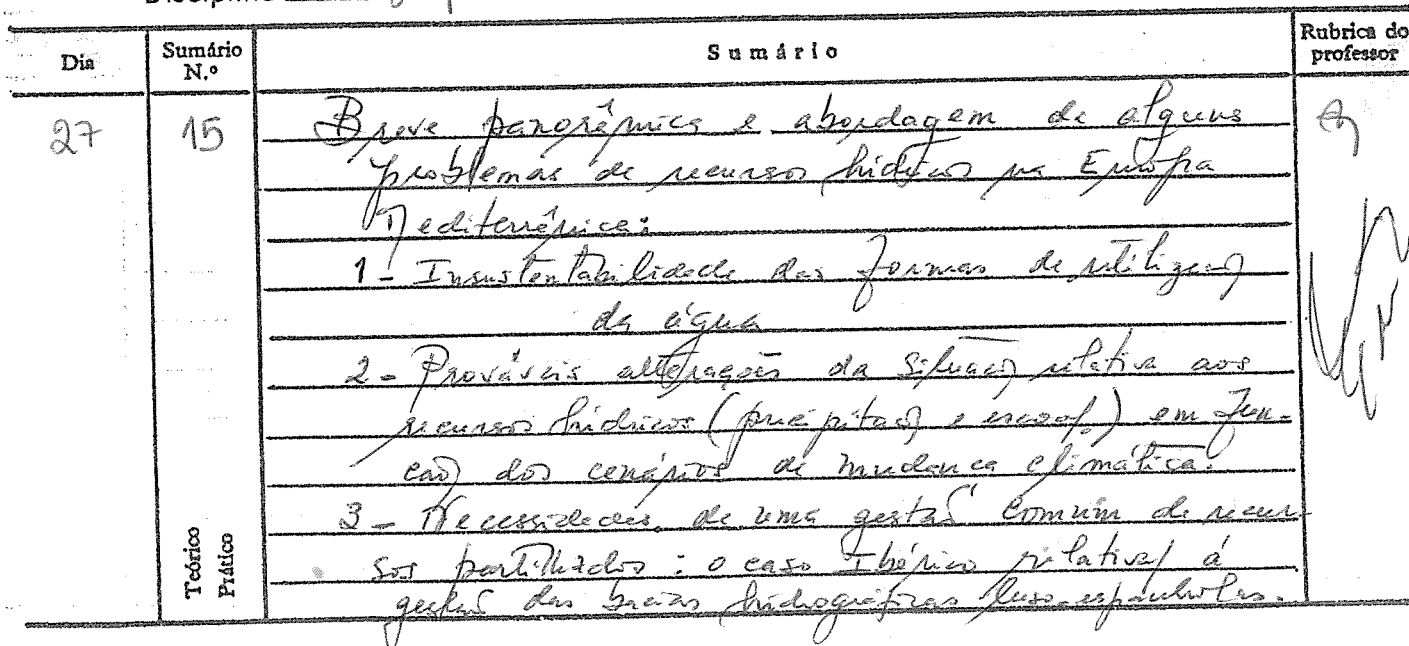 Disciplina
Dia
Sumário N.º
Sumário
Rubrica do professor
27
15
Breve panorâmica e abordagem de alguns
problemas de recursos hídricos na Europa
Mediterrânica:
1 - Insustentabilidade das formas de utilização
da água
2 - Prováveis alterações da situação relativa aos
recursos hídricos (precipitação e escoa/.) em fun-
ção dos cenários de mudança climática.
3 - Necessidades de uma gestão comum de recur-
sos partilhados: o caso Ibérico relativa/ à
gestão das bacias hidrográficas luso-espanholas.
Teórico
Prático